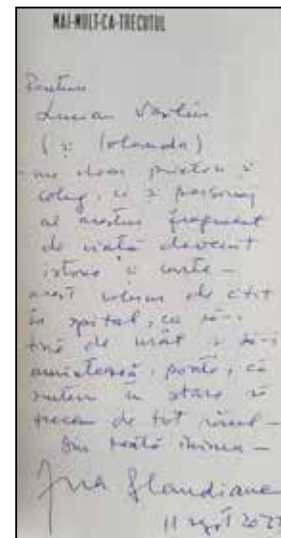 MAI-MULT-CA-TRECUTUL
Pentru
Lucian Vasiliu
(și Iolanda)
- nu doar prieten și
coleg, ci și personaj
al acestui fragment
de viață devenit
istorie și carte -
acest volum de citit
în spital, ca să-i
țină de urât și să-i
amintească, poate, că
suntem în stare să
trecem de tot răul -
Din toată inima -
Ana Blandiana
11 2022